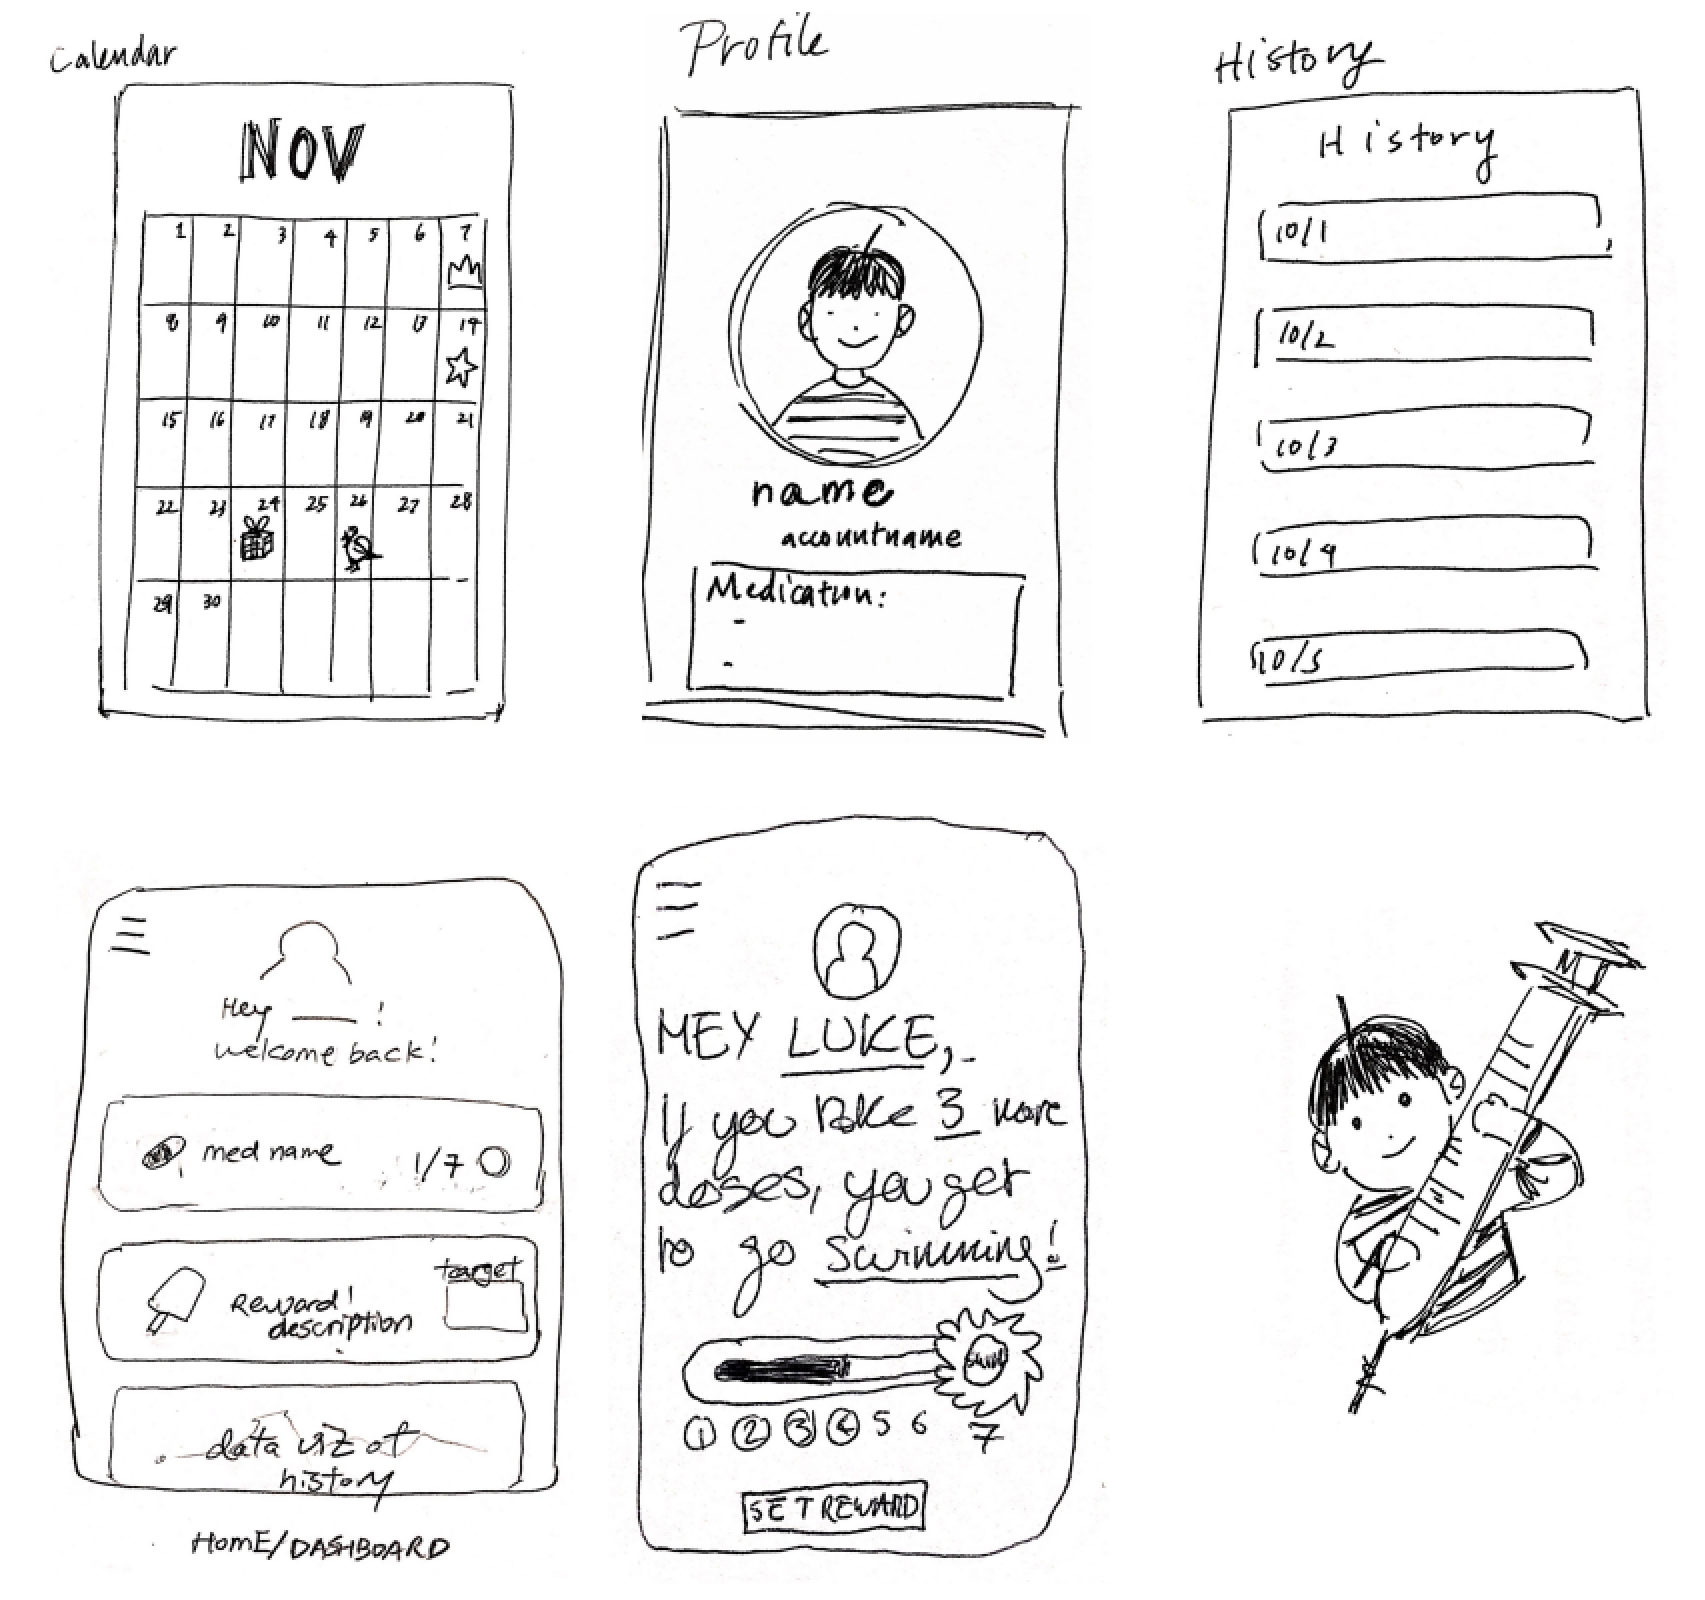 Calendar
NOV
1 2 3 4 5 6 7
8 9 10 11 12 13 14
15 16 17 18 19 20 21
22 23 24 25 26 27 28
29 30
Profile
name
accountname
Medication:
-
-
History
History
10/1
10/2
10/3
10/4
10/5
Hey ___ !
welcome back!
med name 1/7
target
Reward!
description
data viz of
history
HOME/DASHBOARD
HEY LUKE,
if you take 3 more
doses, you get
to go swimming!
SWIM
1 2 3 4 5 6 7
SET REWARD